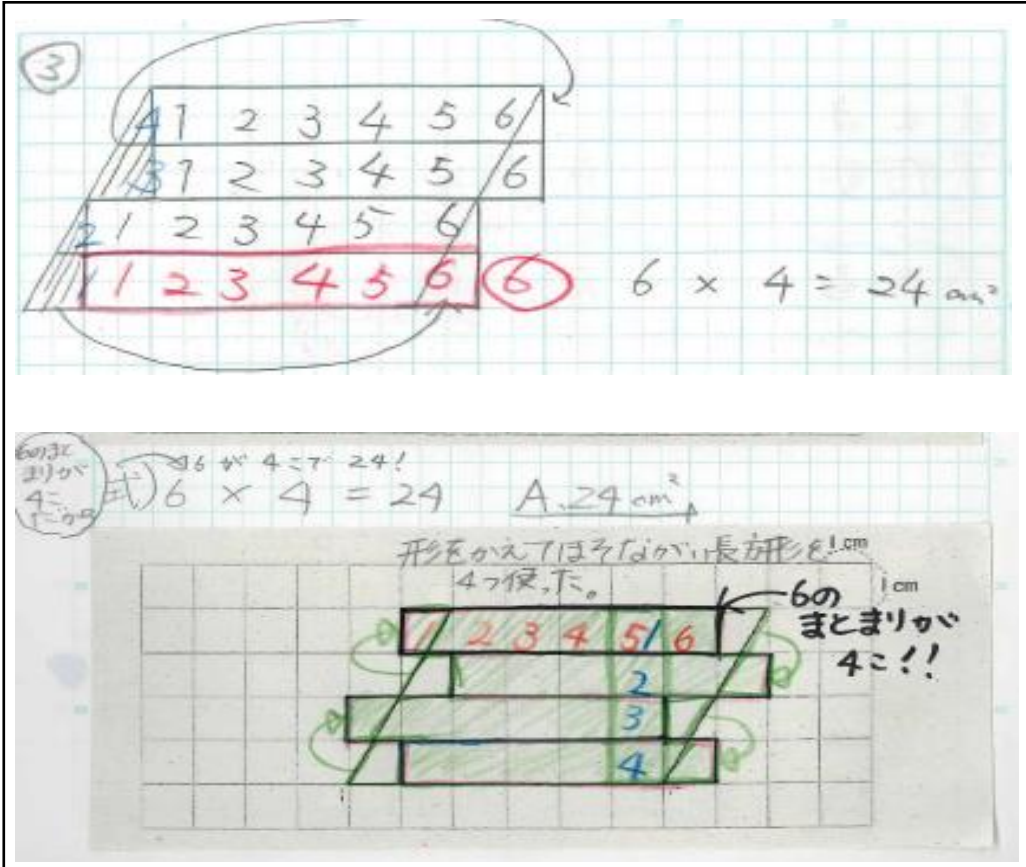 ③
4 1 2 3 4 5 6
3 1 2 3 4 5 6
2 1 2 3 4 5 6
1 1 2 3 4 5 6 ⑥ 6 × 4 = 24 cm²
6のまとまりが4こだから
6が4こで24!
式) 6 × 4 = 24 A.24cm²
形をかえてほそながい長方形を
4つ使った。
1cm
1cm
6の
まとまりが
4こ!!
1 2 3 4 5 1 6
2
3
4